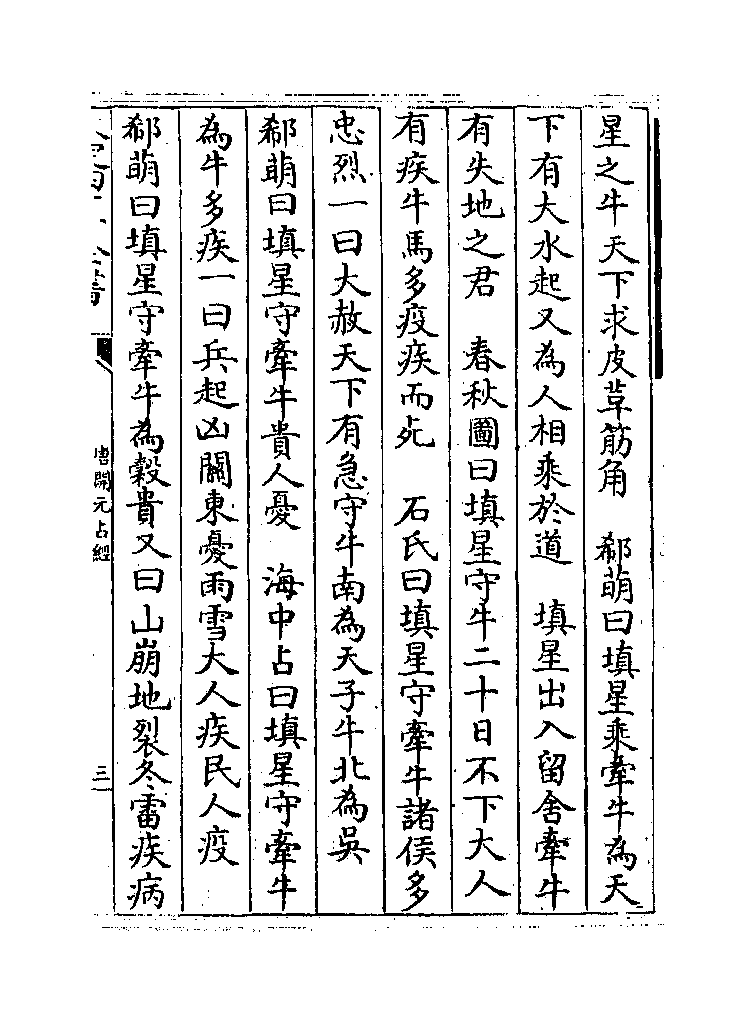 星之牛天下求皮草筋角　郗萌曰填星乘牽牛為天
下有大水起又為人相乘於道　填星出入留舍牽牛
有失地之君　春秋圖曰填星守牛二十日不下大人
有疾牛馬多疫疾而死　石氏曰填星守牽牛諸侯多
忠烈一曰大赦天下有急守牛南為天子牛北為吳
郗萌曰填星守牽牛貴人憂　海中占曰填星守牽牛
為牛多疾一曰兵起凶關東憂雨雪大人疾民人疫
郗萌曰填星守牽牛為穀貴又曰山崩地裂冬雷疾病
唐開元占經
三